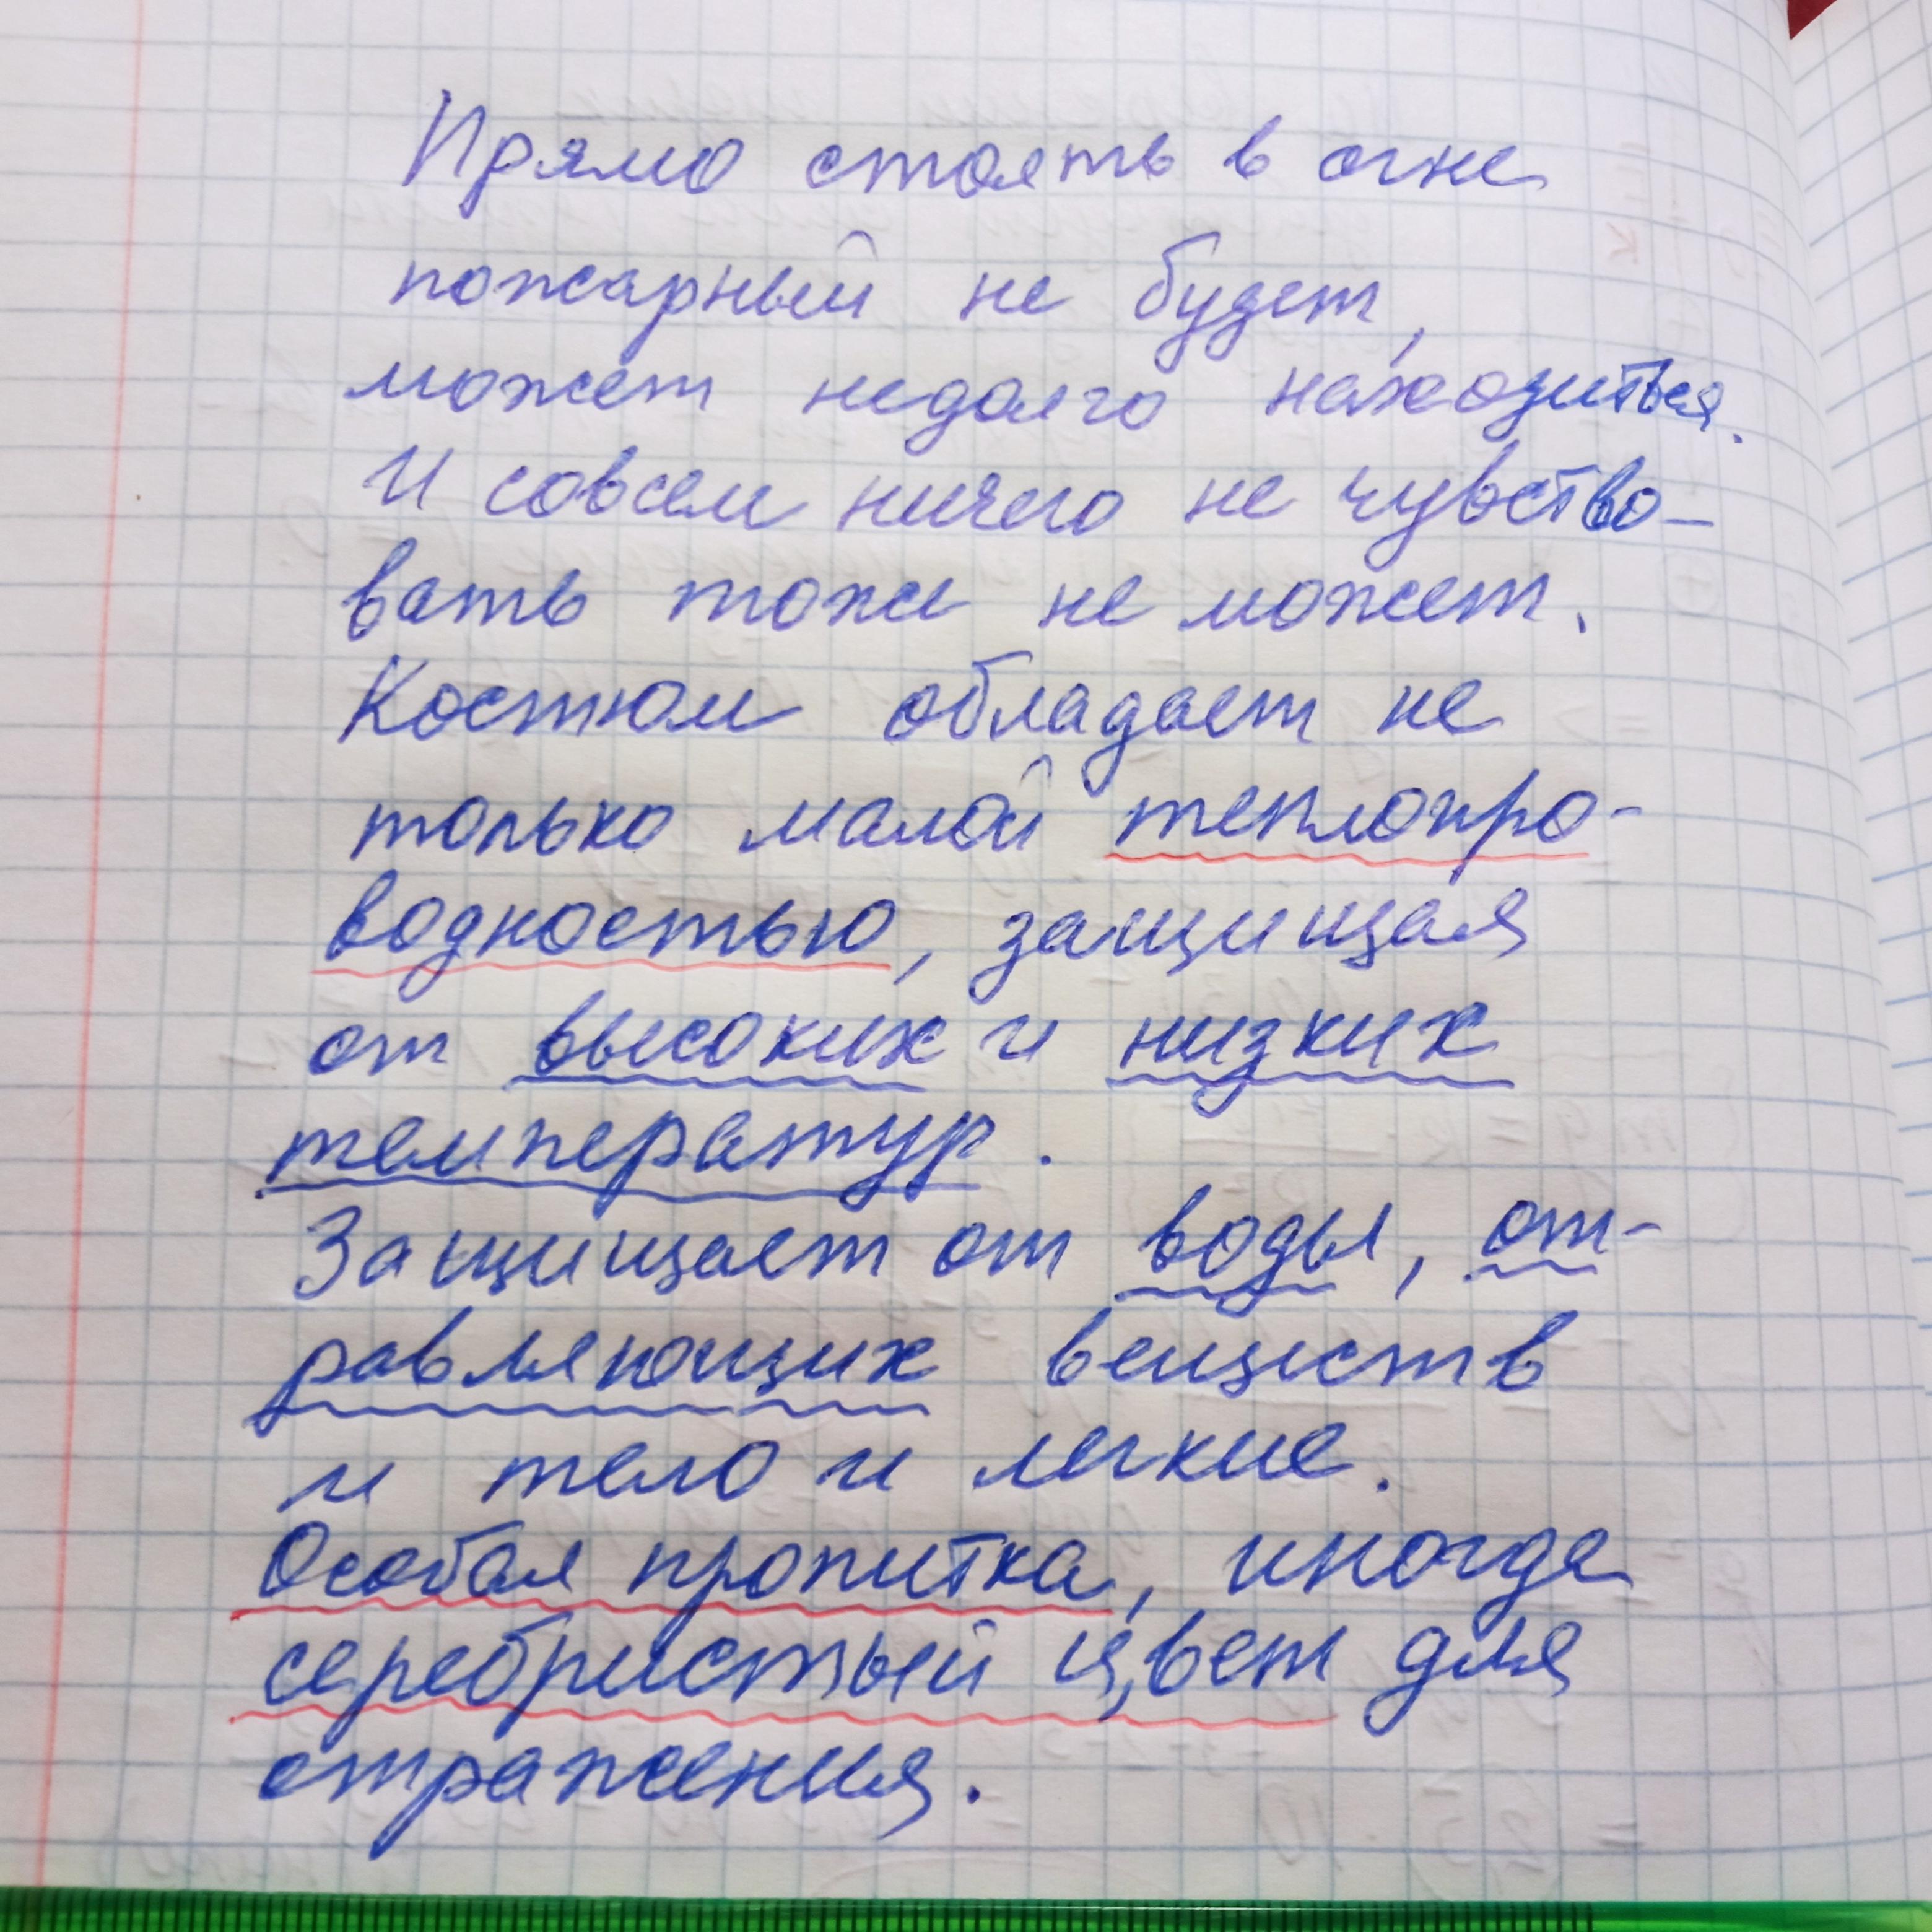 Прямо стоять в огне
пожарный не будет,
может недолго находиться.
И совсем ничего не чувство-
вать тоже не может.
Костюм обладает не
только малой теплопро-
водностью, защищая
от высоких и низких
температур.
Защищает от воды, от-
равляющих веществ
и тело и легкие.
Особая пропитка, иногда
серебристый цвет для
отражения.